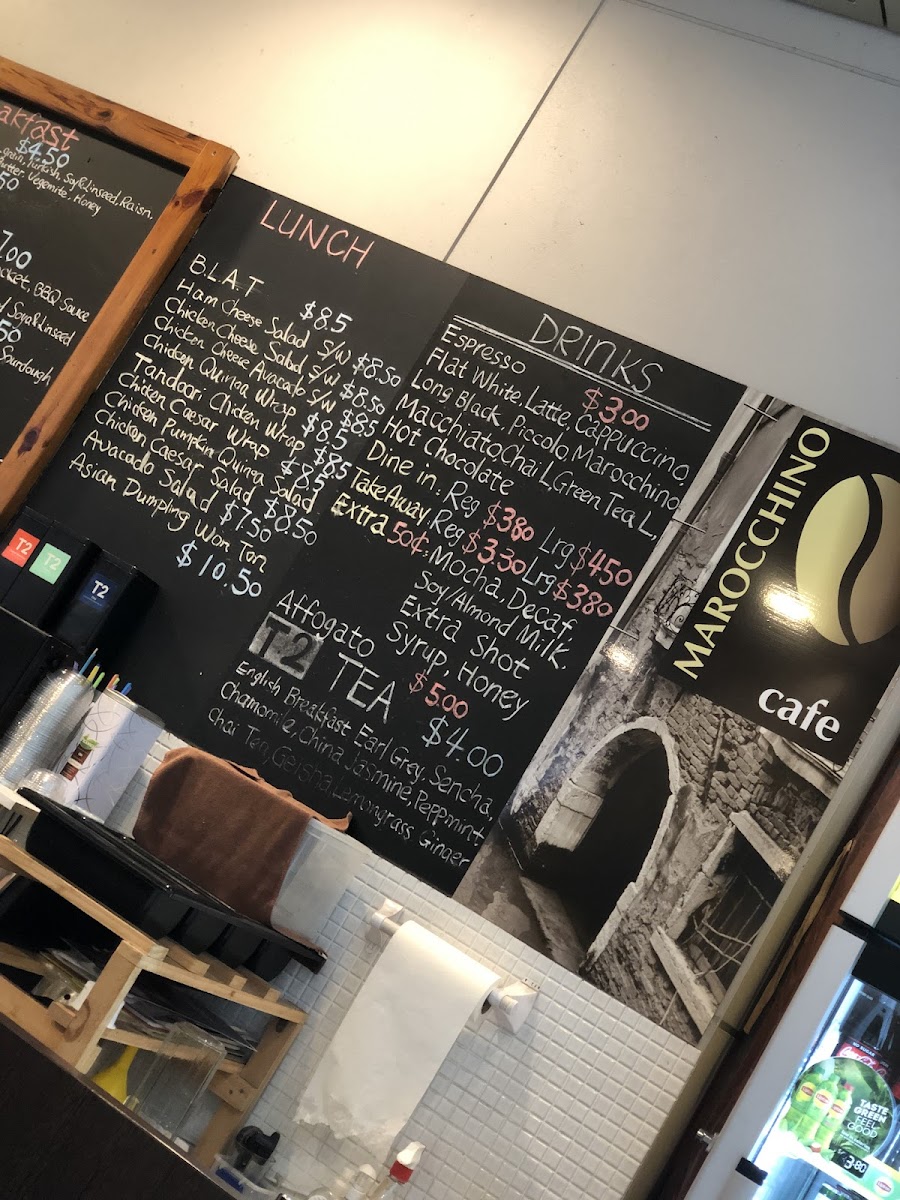 akfast
$4.50
grain, Turkish, Soy&Linseed, Raisn,
utter, Vegemite, Honey
50
7.00
ocket, BBQ Sauce
d Soya&Linseed
50
Sourdough
LUNCH
B.L.A.T $8.5
Ham Cheese Salad S/W $8.50
Chicken Cheese Salad S/W $8.50
Chicken Cheese Avacado S/W $8.5
Chicken Quinoa Wrap $8.5
Tandoori Chicken Wrap $8.5
Chicken Caesar Wrap $8.5
Chicken Pumpkin Quinoa Salad
Chicken Caesar Salad $8.50
Avacado Salad $7.50
Asian Dumpling Won Ton
$10.50
DRINKS
Espresso $3.00
Flat White, Latte, Cappuccino,
Long Black, Piccolo Marocchino
Macchiato Chai L, Green Tea L,
Hot Chocolate
Dine in: Reg $380 Lrg $450
Take Away: Reg $3.30 Lrg $380
Extra 50¢: Mocha, Decaf,
Soy/Almond Milk.
Extra Shot
Syrup, Honey
Affogato $5.00
T2 TEA $4.00
English Breakfast Earl Grey, Sencha,
Chamomile, China Jasmine, Peppmint,
Chai Tea, Geisha, Lemongrass Ginger
MAROCCHINO
cafe
T2
T2
T2
NO SUGAR
Coca-Cola
Lipton
TASTE
GREEN
FEEL
GOOD
3.80